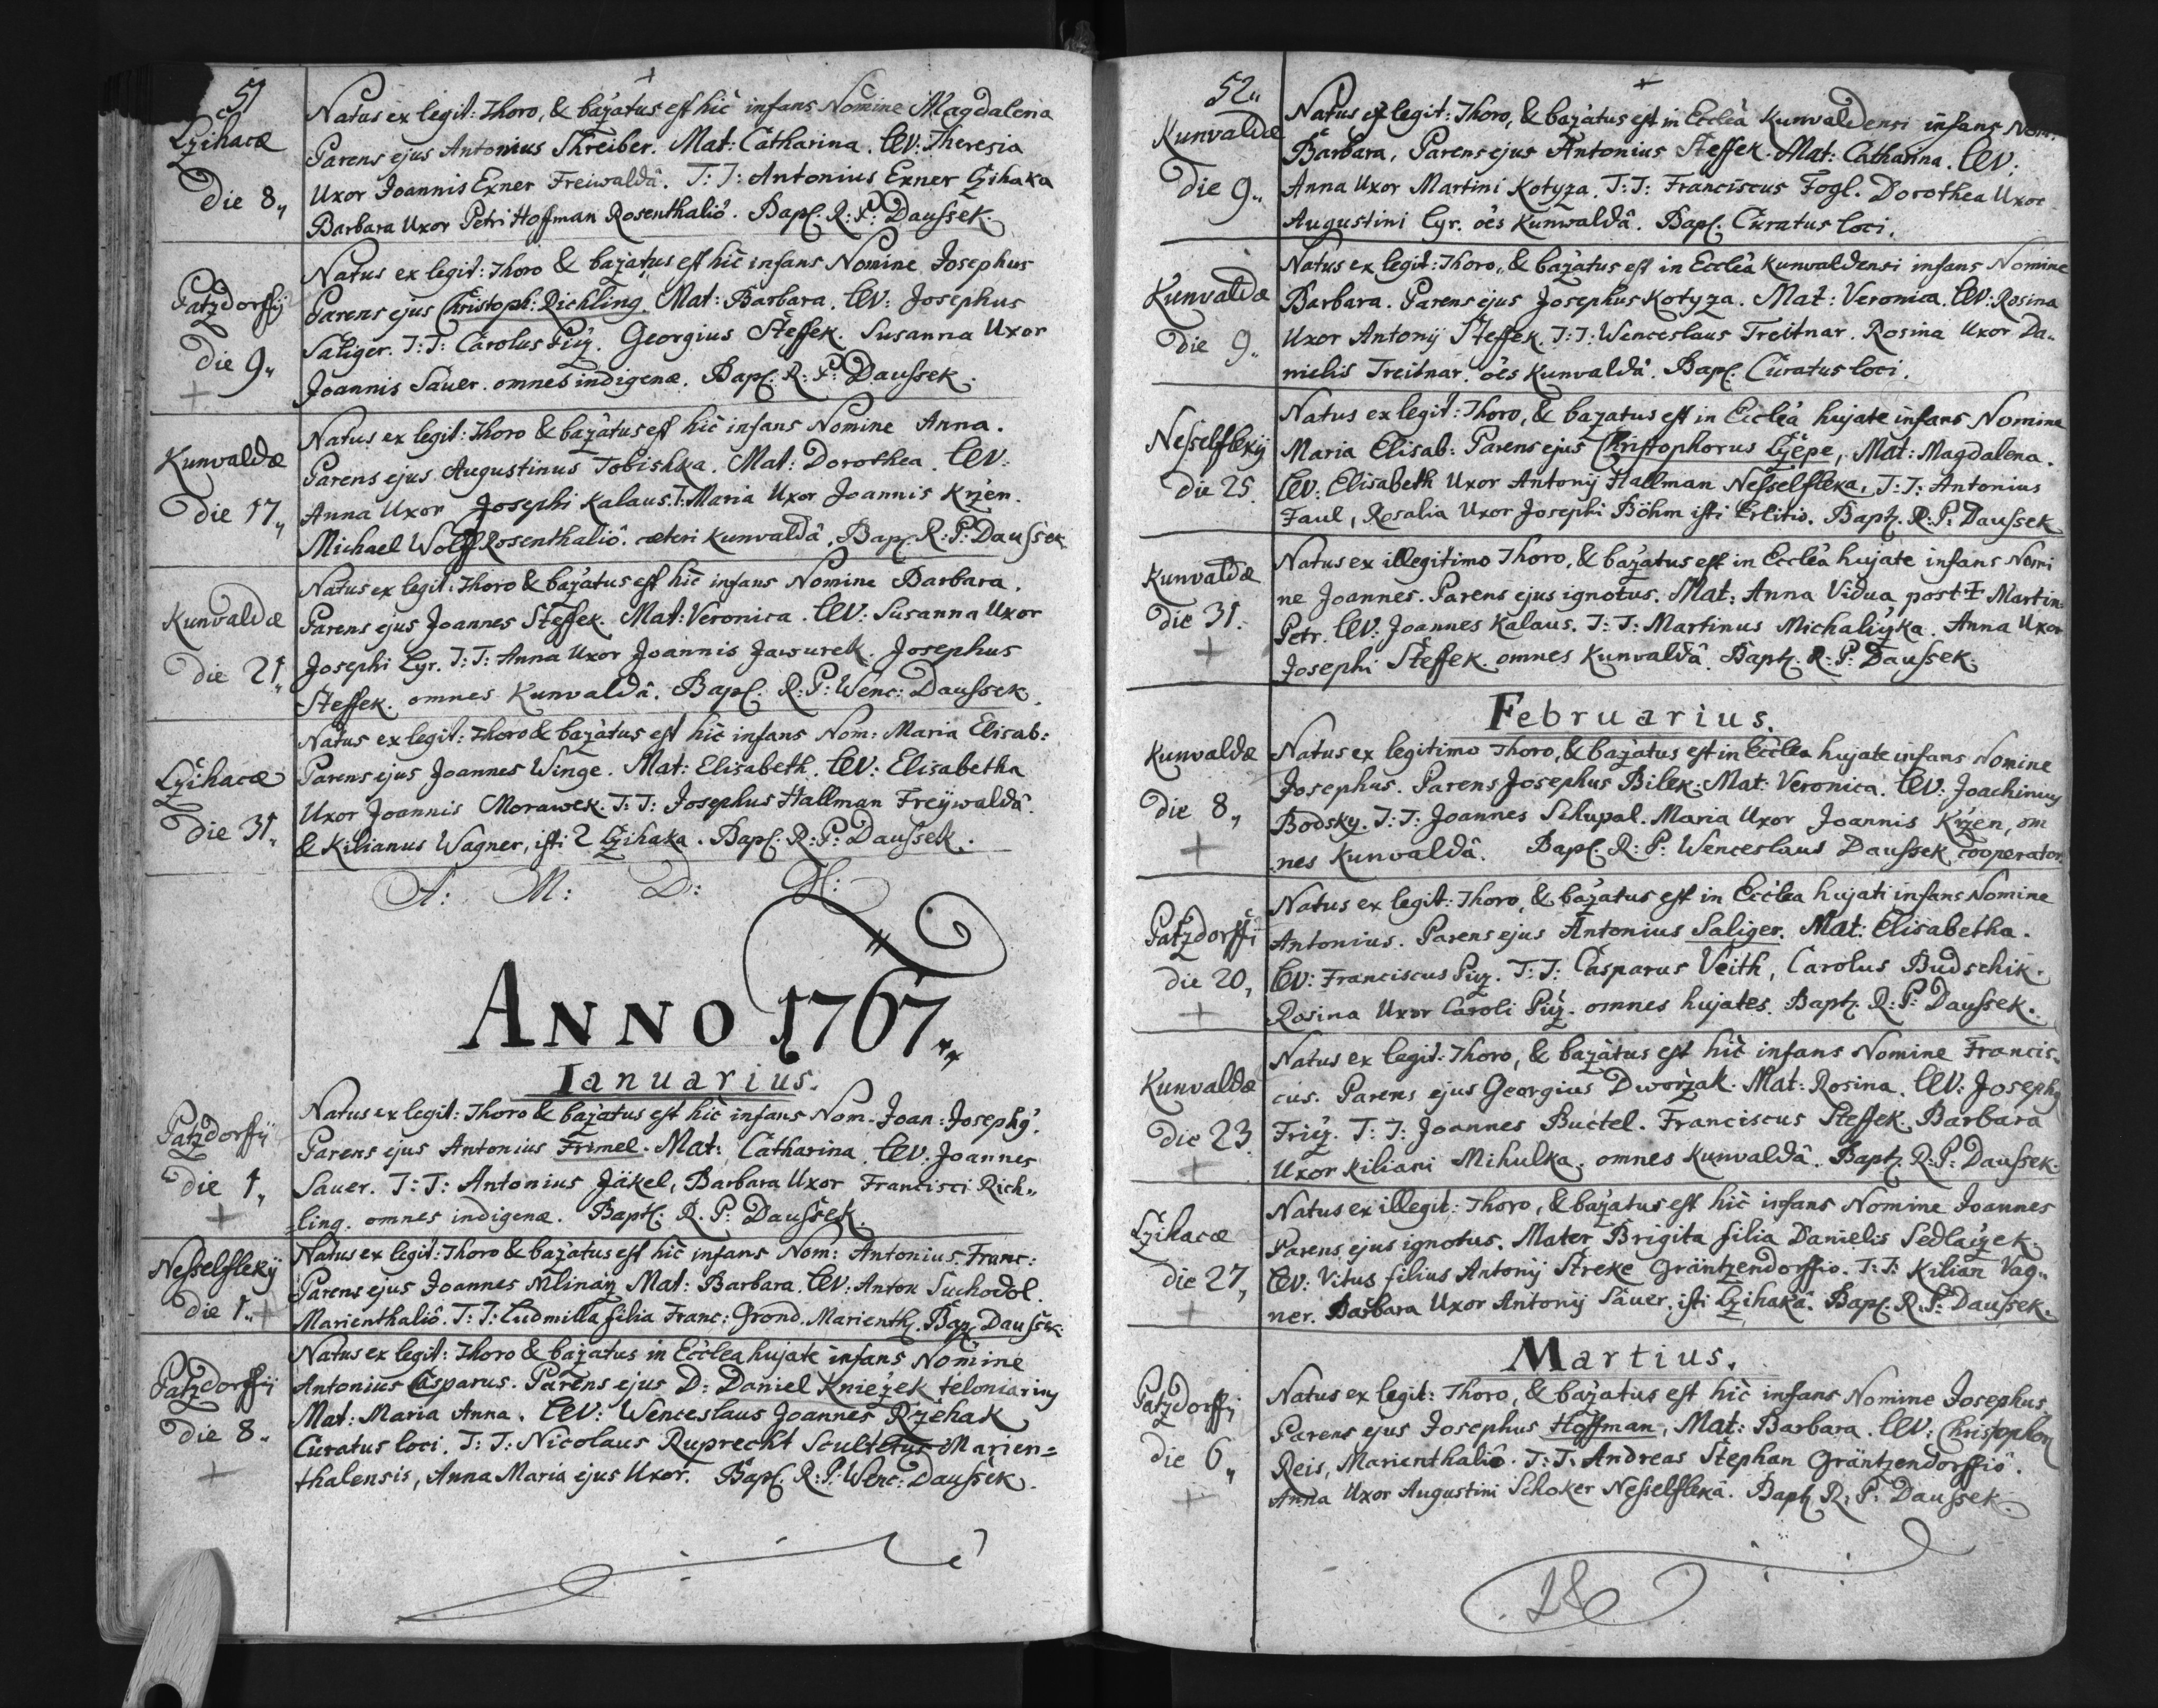 51
Lzihacæ
Die 8,,
Natus ex legit: Thoro, & bazatus est hic infans Nomine Magdalena
Parens ejus Antonius Shreiber. Mat: Catharina. Lev: Theresia
Uxor Joannis Exner Freiwaldâ. T:T: Antonius Exner Lzihaka
Barbara Uxor Petri Hoffman Rosenthaliô. Bapt. R:P: Daussek.
Patzdorffij
die 9,,
+
Natus ex legit: Thoro & bazatus est hic infans Nomine Josephus
Parens ejus Christoph: Richling. Mat: Barbara. Lev: Josephus
Saliger. T:T: Carolus Piz. Georgius Steffek. Susanna Uxor
Joannis Sauer. omnes indigenæ. Bapt. R:P: Daussek.
Kunvaldæ
die 17,,
Natus ex legit: Thoro & bazatus est hic infans Nomine Anna.
Parens ejus Augustinus Tobishka. Mat: Dorothea. Lev:
Anna Uxor Josephi Kalaus. T: Maria Uxor Joannis Krzen.
Michael Wolff Rosenthaliô. cæteri Kunvaldâ. Bapt. R:P: Daussek
Kunvaldæ
die 21,,
Natus ex legit: Thoro & bazatus est hic infans Nomine Barbara.
Parens ejus Joannes Steffek. Mat: Veronica. Lev: Susanna Uxor
Josephi Cyr. T:T: Anna Uxor Joannis Jawurek. Josephus
Steffek. omnes Kunvaldâ. Bapt: R:P: Wenc: Daussek.
Lzihacæ
die 31,,
Natus ex legit: Thoro & bazatus est hic infans Nom: Maria Elisab:
Parens ejus Joannes Winge. Mat: Elisabeth. Lev: Elisabetha
Uxor Joannis Morawek. T:T: Josephus Hallman Freywaldâ.
& Kilianus Wagner, isti 2 Lzihaka. Bapt: R:P: Daussek.
A: M: D: G:
ANNO 1767,,
Ianuarius.
Patzdorffij
die 1,,
+
Natus ex legit: Thoro & bazatus est hic infans Nom. Joan: Josephq.
Parens ejus Antonius Frimel. Mat: Catharina. Lev: Joannes
Sauer. T:T: Antonius Jäkel, Barbara Uxor Francisci Rich,,
=ling. omnes indigenæ. Bapt. R. P: Daussek.
Nesselflekij
die 1.. +
Natus ex legit: Thoro & bazatus est hic infans Nom: Antonius. Franc:
Parens ejus Joannes Mlinarz Mat: Barbara. Lev: Anton Suchodol.
Marienthaliô. T:T: Ludmilla filia Franc: Grond. Marienth. Bap. Daussek.
Patzdorffij
die 8..
+
Natus ex legit: Thoro & bazatus in Ecclea hujate infans Nomine
Antonius Casparus. Parens ejus D: Daniel Kniezek teloniariuq
Mat: Maria Anna. Lev: Wenceslaus Joannes Rzehak
Curatus loci. T:T: Nicolaus Ruprecht Scultetus Marien=
thalensis, Anna Maria ejus Uxor. Bapt. R:P: Wenc: Daussek.
52,,
Kunvaldæ
die 9,,
Natus ex legit: Thoro, & bazatus est in Ecclea Kunvaldensi infans
Barbara, Parens ejus Antonius Steffek. Mat: Catharina. Lev:
Anna Uxor Martini Kotyza. T:T: Franciscus Fogl. Dorothea Uxor
Augustini Cyr. oes Kunwaldâ. Bapt. Curatus loci.
Kunvaldæ
die 9,,
Natus ex legit: Thoro,, & bazatus est in Ecclea Kunvaldensi infans Nomine
Barbara. Parens ejus Josephus Kotyza. Mat: Veronica. Lev: Rosina
Uxor Antonij Steffek. T:T: Wenceslaus Treitnar. Rosina Uxor Da,,
nielis Treitnar. oes Kunvaldâ. Bapt. Curatus loci.
Nesselflexij
die 25.
Natus ex legit: Thoro, & bazatus est in Ecclea hujate infans Nomine
Maria Elisab: Parens ejus Christophorus Lzepe, Mat: Magdalena.
Lev: Elisabeth Uxor Antonij Hallman Nesselfleka, T:T: Antonius
Faul, Rosalia Uxor Josephi Böhm isti Erlitio. Bapt. R:P: Daussek
Kunvaldæ
die 31.
+
Natus ex illegitimo Thoro, & bazatus est in Ecclea hujate infans Nomi
ne Joannes. Parens ejus ignotus. Mat: Anna Vidua post ‡ Martin:
Petr. Lev: Joannes Kalaus. T:T: Martinus Michaliczka. Anna Uxor
Josephi Steffek. omnes Kunvaldâ. Bapt. R:P: Daussek.
Februarius.
Kunvaldæ
die 8,,
+
Natus ex legitimo Thoro, & bazatus est in Ecclea hujate infans Nomine
Josephus. Parens Josephus Bilek. Mat: Veronica. Lev: Joachimus
Bodsky. T:T: Joannes Schupal. Maria Uxor Joannis Krzen, om
nes Kunvaldâ. Bapt. R:P: Wenceslaus Daussek, cooperator.
Patzdorffi
die 20,
+
Natus ex legit: Thoro, & bazatus est in Ecclea hujati infans Nomine
Antonius. Parens ejus Antonius Saliger. Mat: Elisabetha.
Lev: Franciscus Piz. T:T: Casparus Veith, Carolus Budschik.
Rosina Uxor Caroli Piz. omnes hujates. Bapt. R:P: Daussek.
Kunvaldæ
die 23.
+
Natus ex legit: Thoro, & bazatus est hic infans Nomine Francis,,
cus. Parens ejus Georgius Dworzak. Mat: Rosina. Lev: Josephq
Friz. T:T: Joannes Buctel. Franciscus Steffek. Barbara
Uxor Kiliani Mihulka. omnes Kunvaldâ. Bapt. R:P: Daussek.
Lzihacæ
die 27,
+
Natus ex illegit: Thoro, & bazatus est hic infans Nomine Joannes
Parens ejus ignotus. Mater Brigita filia Danielis Sedlaczek.
Lev: Vitus filius Antonij Streke Gräntzendorffio. T:T: Kilian Vag,,
ner. Barbara Uxor Antonij Sauer. isti Lzihakâ. Bapt. R:P: Daussek.
Martius.
Patzdorffij
die 6,,
+
Natus ex legit: Thoro, & bazatus est hic infans Nomine Josephus
Parens ejus Josephus Hoffman, Mat: Barbara. Lev: Christophor
Reis, Marienthaliô. T:T: Andreas Stephan Gräntzendorffiô.
Anna Uxor Augustini Schoker Nesselflexâ. Bapt R:P: Daussek.
18